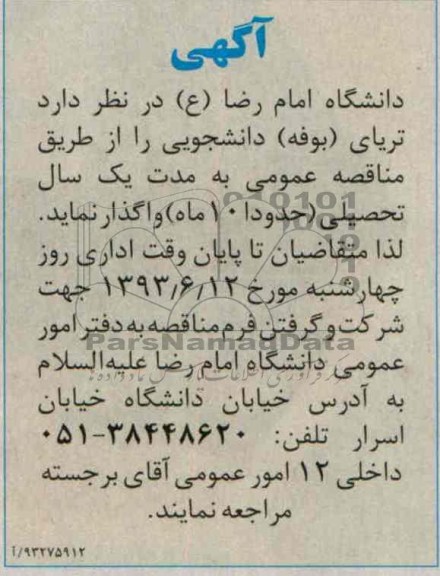 آگهی
دانشگاه امام رضا (ع) در نظر دارد
تریای (بوفه) دانشجویی را از طریق
مناقصه عمومی به مدت یک سال
تحصیلی(حدودا ۱۰ماه)واگذار نماید.
لذا متقاضیان تا پایان وقت اداری روز
چهارشنبه مورخ ۱۳۹۳٫۶٫۱۲ جهت
شرکت و گرفتن فرم مناقصه به دفتر امور
ParsNamadData
عمومی دانشگاه امام رضا علیه‌السلام
به آدرس خیابان دانشگاه خیابان
اسرار تلفن: ۳۸۴۴۸۶۲۰-۰۵۱
داخلی ۱۲ امور عمومی آقای برجسته
مراجعه نمایند.
۹۳۲۷۵۹۱۲/آ